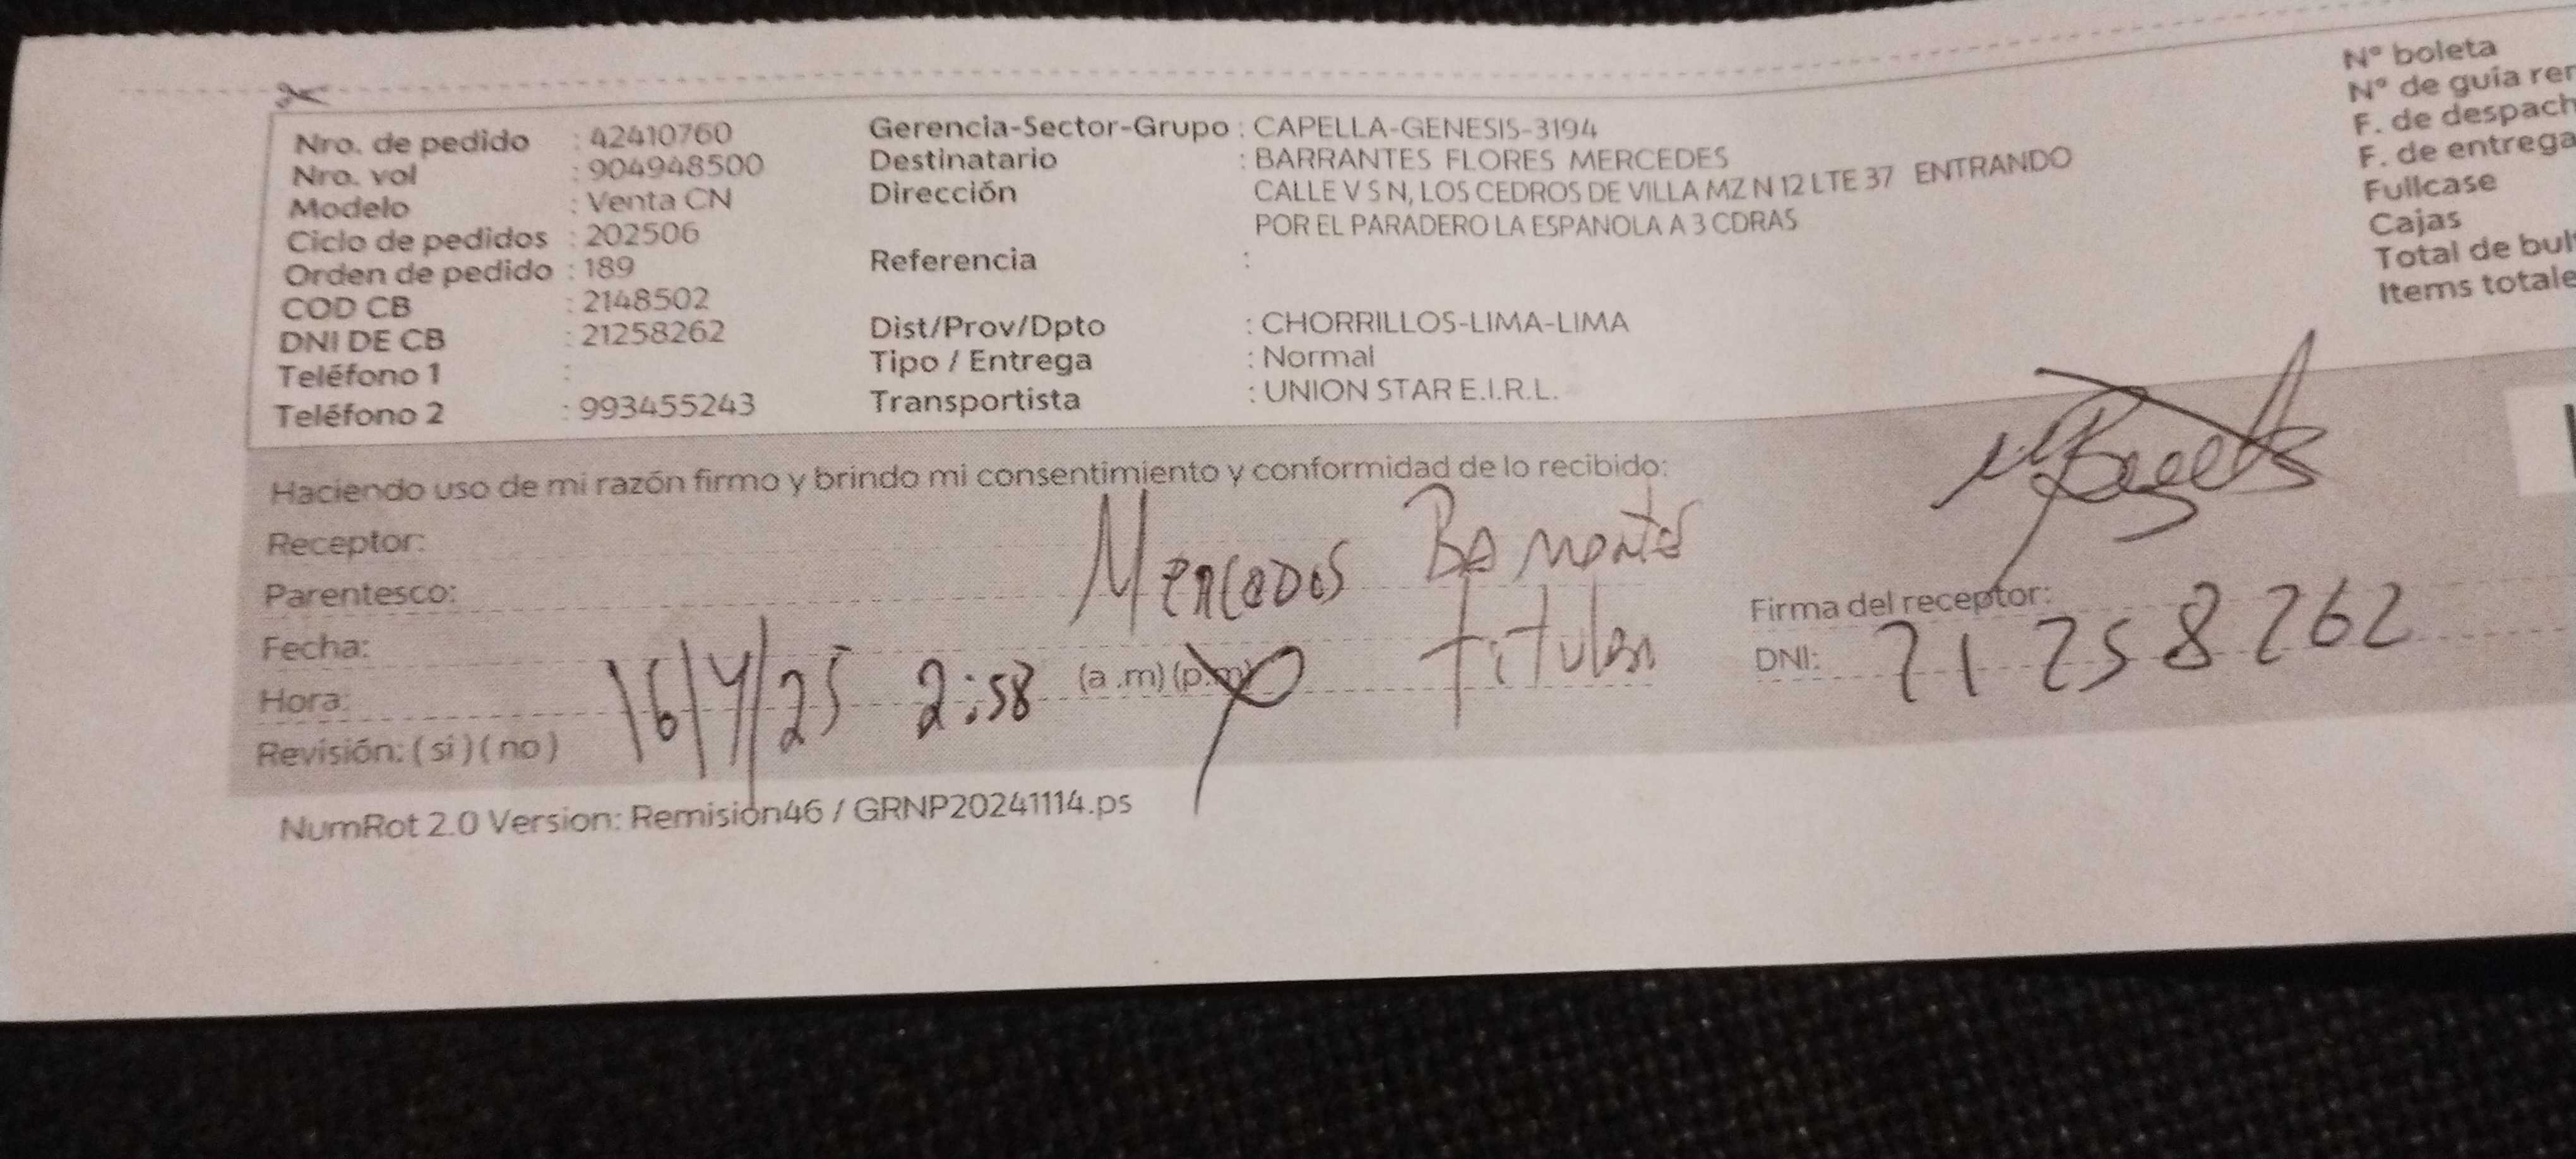 Nro. de pedido : 42410760
Nro. vol : 904948500
Modelo : Venta CN
Ciclo de pedidos : 202506
Orden de pedido : 189
COD CB : 2148502
DNI DE CB : 21258262
Teléfono 1 :
Teléfono 2 : 993455243
Gerencia-Sector-Grupo : CAPELLA-GENESIS-3194
Destinatario : BARRANTES FLORES MERCEDES
Dirección CALLE V S N, LOS CEDROS DE VILLA MZ N 12 LTE 37 ENTRANDO
POR EL PARADERO LA ESPANOLA A 3 CDRAS
Referencia :
Dist/Prov/Dpto : CHORRILLOS-LIMA-LIMA
Tipo / Entrega : Normal
Transportista : UNION STAR E.I.R.L.
N° boleta
N° de guía
F. de
F. de entrega
Fullcase
Cajas
Total de
Items
Haciendo uso de mi razón firmo y brindo mi consentimiento y conformidad de lo recibido:
Receptor:
Parentesco:
Fecha: 16/4/25
Hora: 2:58 (a.m) (p.m)
Revisión: (si) (no)
Firma del receptor:
DNI: 21258262
NumRot 2.0 Version: Remision46 / GRNP20241114.ps